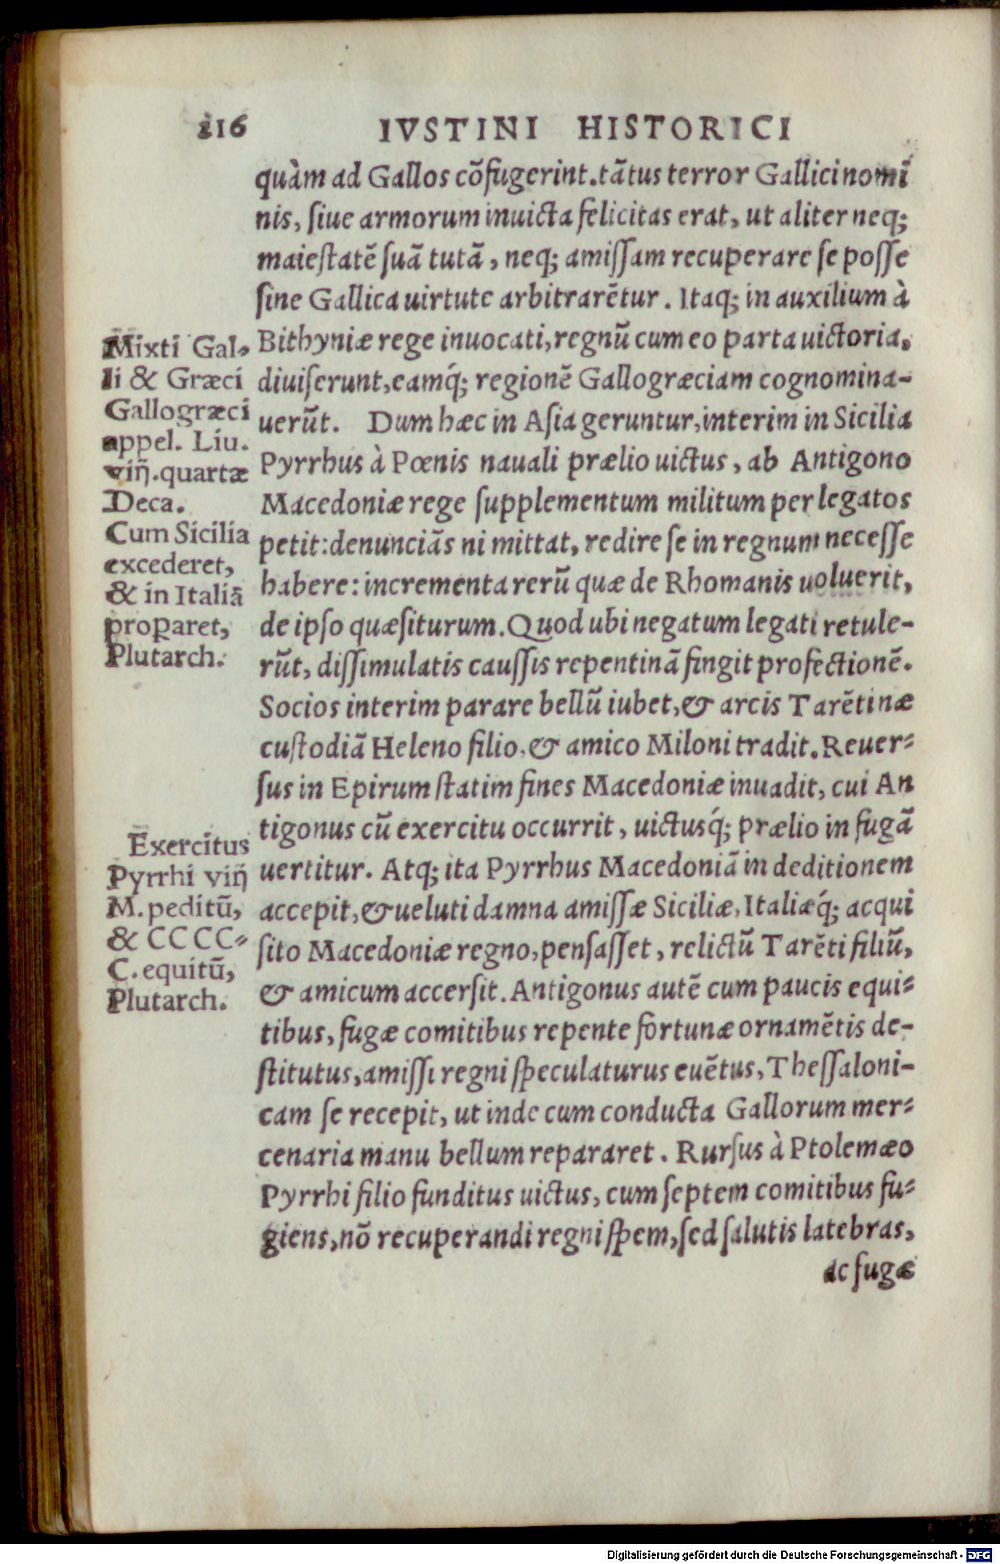 216
IVSTINI HISTORICI
quàm ad Gallos cõfugerint. tãtus terror Gallici nomi
nis, siue armorum inuicta felicitas erat, ut aliter neq;
maiestatẽ suã tutã, neq; amissam recuperare se posse
sine Gallica uirtute arbitrarẽtur. Itaq; in auxilium à
Bithyniæ rege inuocati, regnũ cum eo parta uictoria,
diuiserunt, eamq́; regionẽ Gallogræciam cognomina-
uerũt. Dum hæc in Asia geruntur, interim in Sicilia
Pyrrhus à Pœnis nauali prælio uictus, ab Antigono
Macedoniæ rege supplementum militum per legatos
petit: denunciãs ni mittat, redire se in regnum necesse
habere: incrementa rerũ quæ de Rhomanis uoluerit,
de ipso quæsiturum. Quod ubi negatum legati retule-
rũt, dissimulatis caussis repentinã fingit profectionẽ.
Socios interim parare bellũ iubet, & arcis Tarẽtinæ
custodiã Heleno filio, & amico Miloni tradit. Reuer-
sus in Epirum statim fines Macedoniæ inuadit, cui An
tigonus cũ exercitu occurrit, uictusq́; prælio in fugã
uertitur. Atq; ita Pyrrhus Macedoniã in deditionem
accepit, & ueluti damna amissæ Siciliæ, Italiæq́; acqui
sito Macedoniæ regno, pensasset, relictũ Tarẽti filiũ,
& amicum accersit. Antigonus autẽ cum paucis equi-
tibus, fugæ comitibus repente fortunæ ornamẽtis de-
stitutus, amissi regni speculaturus euẽtus, Thessaloni-
cam se recepit, ut inde cum conducta Gallorum mer-
cenaria manu bellum repararet. Rursus à Ptolemæo
Pyrrhi filio funditus uictus, cum septem comitibus fu-
giens, nõ recuperandi regni spem, sed salutis latebras,
ac fugæ
Mixti Gal-
li & Græci
Gallogræci
appel. Liu.
viij. quartæ
Deca.
Cum Sicilia
excederet,
& in Italiã
properaret,
Plutarch.
Exercitus
Pyrrhi viij
M. peditũ,
& CCCC-
C. equitũ,
Plutarch.
Digitalisierung gefördert durch die Deutsche Forschungsgemeinschaft - DFG